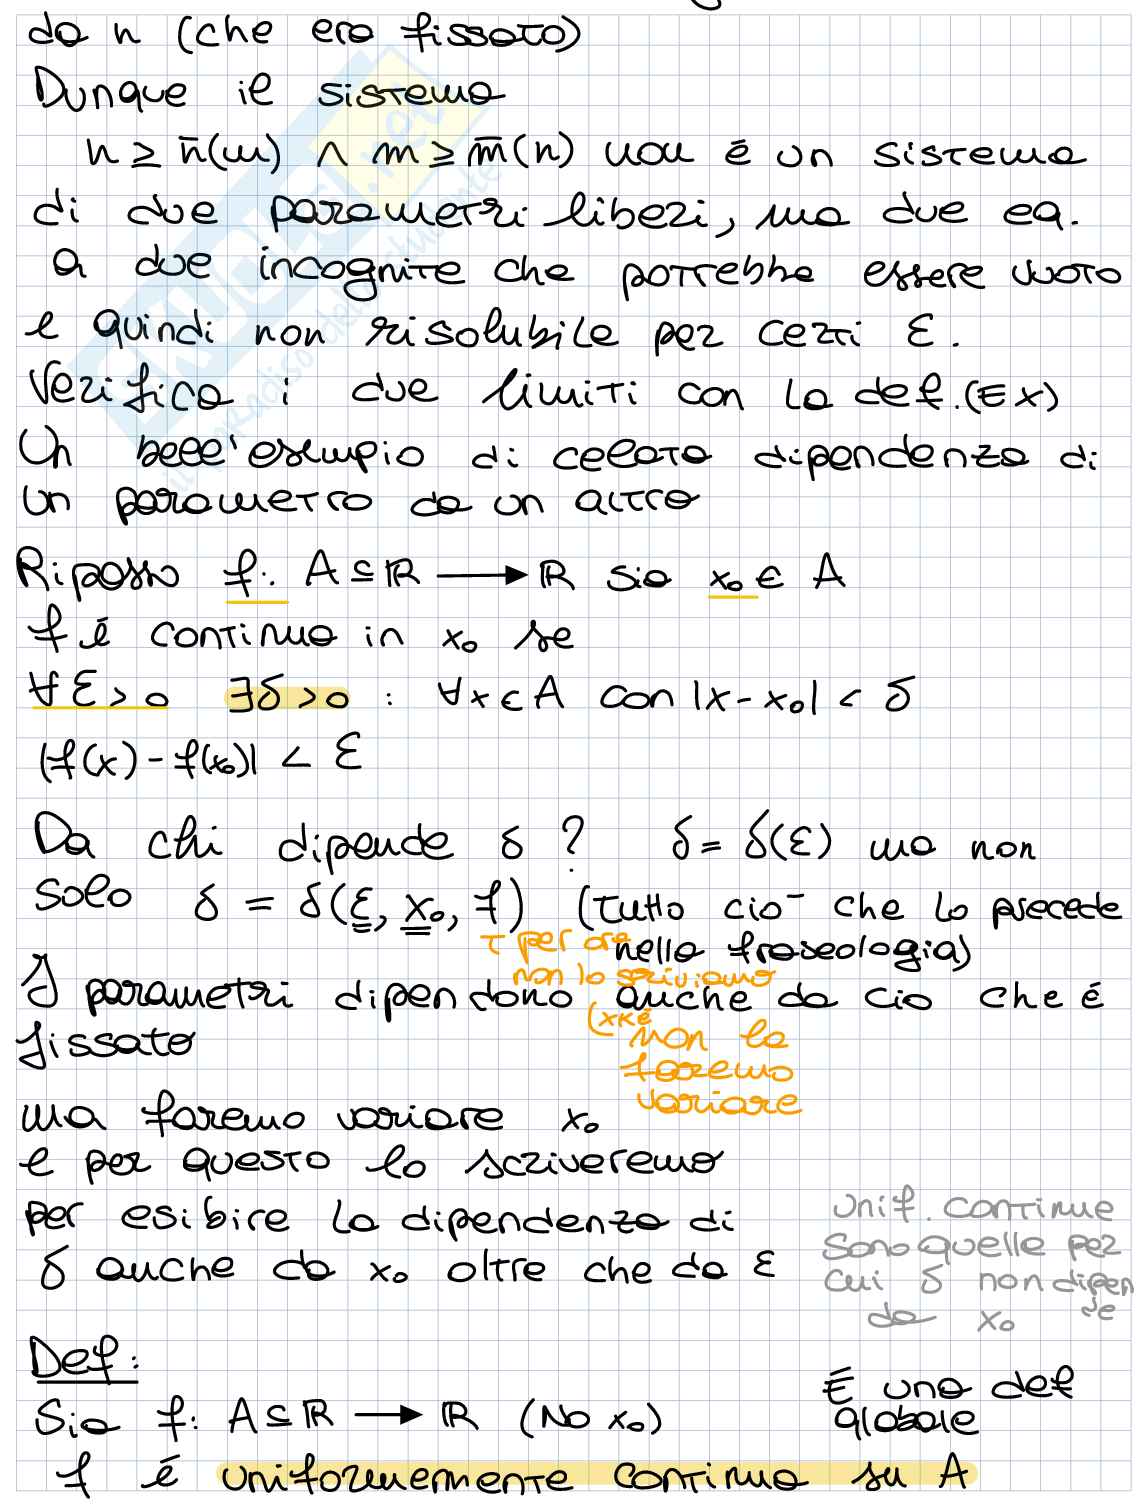 da n (che era fissato)
Dunque il sistema
n ≥ n̄(m) ∧ m ≥ m̄(n) non è un sistema
di due parametri liberi, ma due eq.
a due incognite che potrebbe essere vuoto
e quindi non risolubile per certi ε.
Verifica i due limiti con la def. (Ex)
Un bell'esempio di celata dipendenza di
un parametro da un altro
Ripasso f: A ⊆ ℝ ⟶ ℝ sia x₀ ∈ A
f è continua in x₀ se
∀ε > 0 ∃δ > 0 : ∀x ∈ A con |x - x₀| < δ
|f(x) - f(x₀)| < ε
Da chi dipende δ ? δ = δ(ε) ma non
solo δ = δ(ε, x₀, f) (tutto ciò che lo precede
nella fraseologia)
↑ per ora
non lo scriviamo
(xké
non la
faremo
variare
I parametri dipendono anche da cio che è
fissato
ma faremo variare x₀
e per questo lo scriveremo
per esibire la dipendenza di
δ anche da x₀ oltre che da ε
unif. continue
sono quelle per
cui δ non dipen
de
da x₀
Def:
Sia f: A ⊆ ℝ ⟶ ℝ (No x₀)
È una def
globale
f è uniformemente continua su A